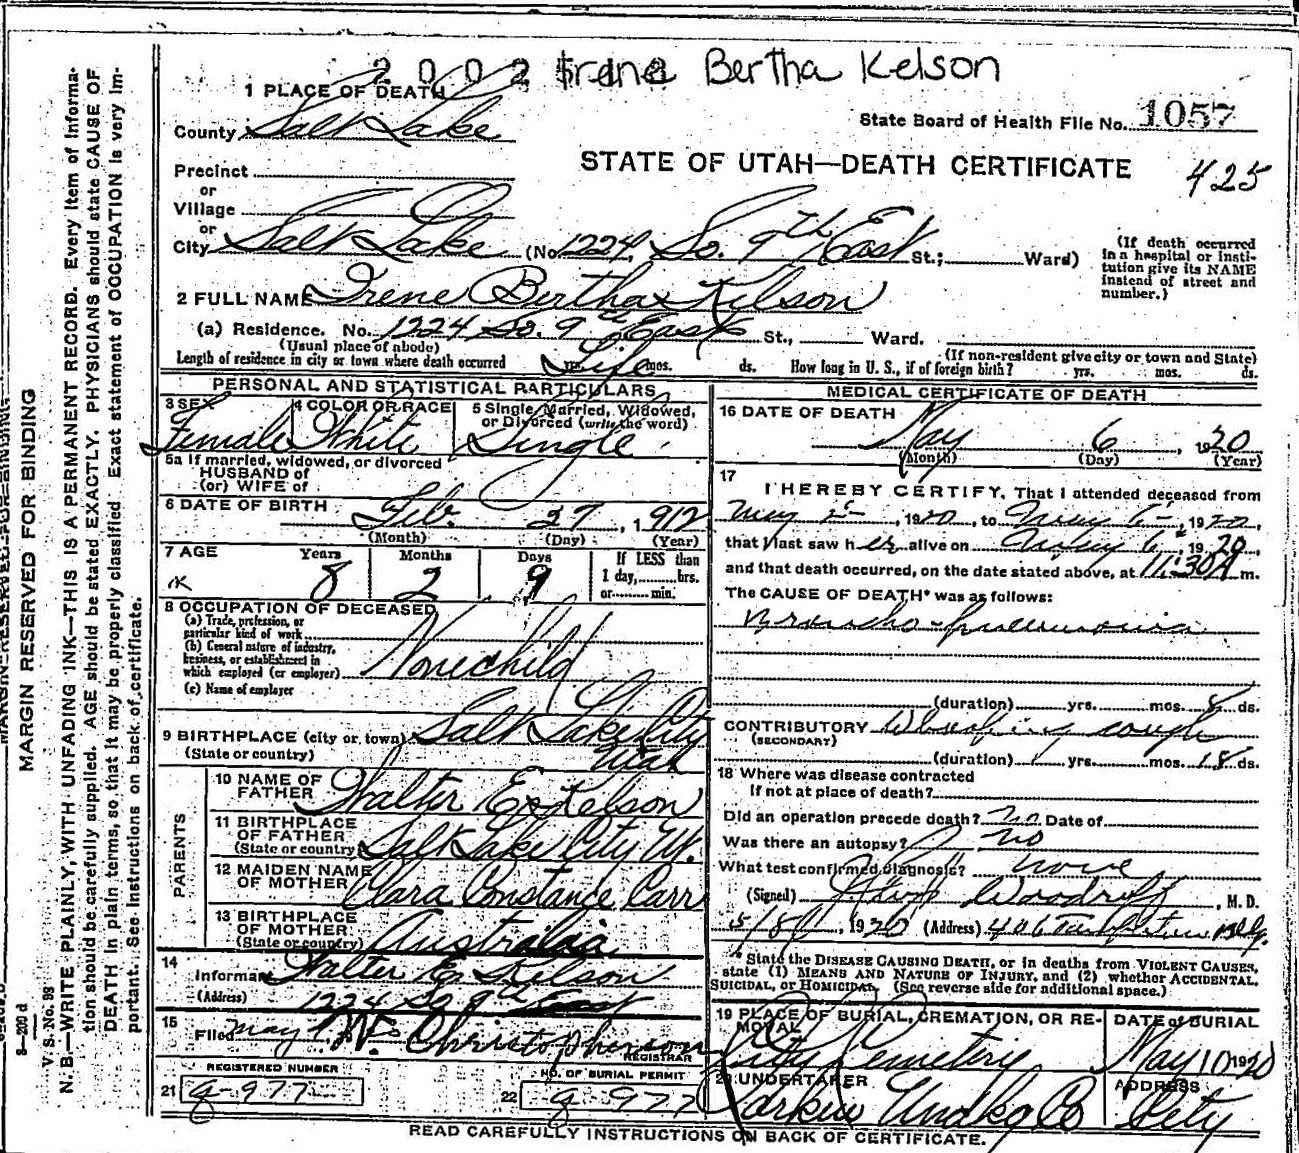 2 0 0 2 Irene Bertha Kelson
1 PLACE OF DEATH
County Salt Lake
State Board of Health File No. 1057
STATE OF UTAH—DEATH CERTIFICATE 425
Precinct
or
Village
or
City Salt Lake (No. 1224 So. 9th East St.; Ward)
(If death occurred in a hospital or institution give its NAME instead of street and number.)
2 FULL NAME Irene Bertha Kelson
(a) Residence. No. 1224 So. 9th East St., Ward.
(Usual place of abode) (If non-resident give city or town and State)
Length of residence in city or town where death occurred Life yrs. mos. ds. How long in U. S., if of foreign birth? yrs. mos. ds.
PERSONAL AND STATISTICAL PARTICULARS
3 SEX Female
4 COLOR OR RACE White
5 Single, Married, Widowed, or Divorced (write the word) Single
5a If married, widowed, or divorced
HUSBAND of
(or) WIFE of
6 DATE OF BIRTH Feb. 27, 1912
(Month) (Day) (Year)
7 AGE Years 8 Months 2 Days 9 If LESS than 1 day, hrs. or min.
8 OCCUPATION OF DECEASED
(a) Trade, profession, or particular kind of work
(b) General nature of industry, business, or establishment in which employed (or employer)
(c) Name of employer
None child
9 BIRTHPLACE (city or town) Salt Lake City
(State or country) Utah
PARENTS
10 NAME OF FATHER Walter E. Kelson
11 BIRTHPLACE OF FATHER (State or country) Salt Lake City Ut.
12 MAIDEN NAME OF MOTHER Clara Constance Carr
13 BIRTHPLACE OF MOTHER (State or country) Australia
14 Informant Walter E. Kelson
(Address) 1224 So 9th East
15 Filed May Christopherson
REGISTRAR
REGISTERED NUMBER
21 g-977
NO. OF BURIAL PERMIT
22 g-977
MEDICAL CERTIFICATE OF DEATH
16 DATE OF DEATH May 6, 1920
(Month) (Day) (Year)
17 I HEREBY CERTIFY, That I attended deceased from
May 5, 1920, to May 6, 1920,
that I last saw her alive on May 6, 1920,
and that death occurred, on the date stated above, at 11:30 A m.
The CAUSE OF DEATH* was as follows:
Broncho-pneumonia
(duration) yrs. mos. ds.
CONTRIBUTORY Whooping cough
(SECONDARY)
(duration) yrs. mos. 18 ds.
18 Where was disease contracted
If not at place of death?
Did an operation precede death? no Date of
Was there an autopsy? no
What test confirmed diagnosis? none
(Signed) Woodruff, M. D.
5/8, 1920 (Address) 406 Templeton Bldg.
* State the DISEASE CAUSING DEATH, or in deaths from VIOLENT CAUSES, state (1) MEANS AND NATURE OF INJURY, and (2) whether ACCIDENTAL, SUICIDAL, or HOMICIDAL. (See reverse side for additional space.)
19 PLACE OF BURIAL, CREMATION, OR REMOVAL City Cemetery
DATE of BURIAL May 10 1920
20 UNDERTAKER Larkin Undkg Co
ADDRESS City
READ CAREFULLY INSTRUCTIONS ON BACK OF CERTIFICATE.
MARGIN RESERVED FOR BINDING
V. S. No. 98
N. B.—WRITE PLAINLY, WITH UNFADING INK—THIS IS A PERMANENT RECORD. Every item of information should be carefully supplied. AGE should be stated EXACTLY. PHYSICIANS should state CAUSE OF DEATH in plain terms, so that it may be properly classified. Exact statement of OCCUPATION is very important. See instructions on back of certificate.